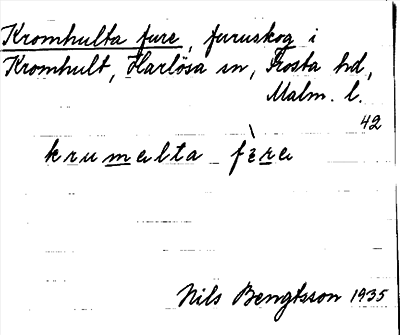 Kromhulta fure, furuskog i
Kromhult, Harlösa sn, Frosta hd,
Malm. l.
42
krumalta fèra
Nils Bengtsson 1935